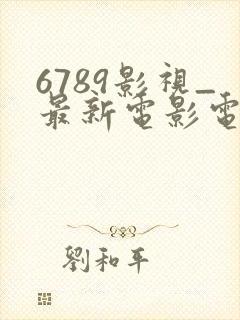 6789影視_
最新電影電
劉和平